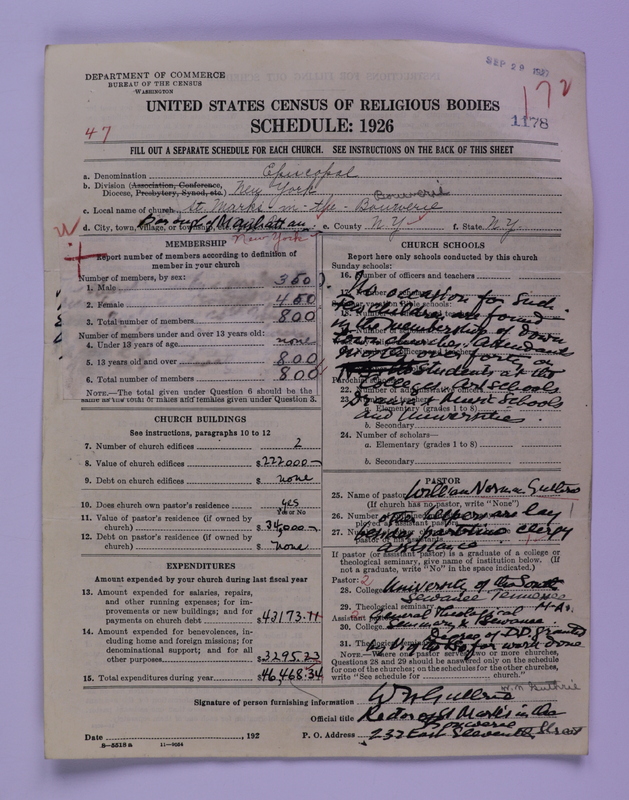 SEP 29 1927
172
1178
DEPARTMENT OF COMMERCE
BUREAU OF THE CENSUS
WASHINGTON
UNITED STATES CENSUS OF RELIGIOUS BODIES
SCHEDULE: 1926
47
FILL OUT A SEPARATE SCHEDULE FOR EACH CHURCH. SEE INSTRUCTIONS ON THE BACK OF THIS SHEET
a. Denomination Episcopal
b. Division (Association, Conference, Diocese, Presbytery, Synod, etc.) New York
Bouwerie
c. Local name of church St. Marks-in-the-Bouwerie
d. City, town, village, or township Borough of Manhattan e. County N.Y. f. State N.Y.
New York
MEMBERSHIP
Report number of members according to definition of
member in your church
Number of members, by sex:
1. Male 350
2. Female 450
3. Total number of members 800
Number of members under and over 13 years old:
4. Under 13 years of age none
5. 13 years old and over 800
6. Total number of members 800
NOTE.—The total given under Question 6 should be the
same as the total of males and females given under Question 3.
CHURCH BUILDINGS
See instructions, paragraphs 10 to 12
7. Number of church edifices 2
8. Value of church edifices $222000.—
9. Debt on church edifices $ none
10. Does church own pastor's residence? yes
Yes or No
11. Value of pastor's residence (if owned by
church) $34,000.—
12. Debt on pastor's residence (if owned by
church) $ none
EXPENDITURES
Amount expended by your church during last fiscal year
13. Amount expended for salaries, repairs,
and other running expenses; for im-
provements or new buildings; and for
payments on church debt $43173.11
14. Amount expended for benevolences, in-
cluding home and foreign missions; for
denominational support; and for all
other purposes $3295.23
15. Total expenditures during year $46,468.34
CHURCH SCHOOLS
Report here only schools conducted by this church
Sunday schools:
16. Number of officers and teachers
No occasion for such
children are found
in the membership of down
town churches. Attendants
students at the
colleges, Art schools
Drama & Music Schools
and Universities.
a. Elementary (grades 1 to 8)
b. Secondary
24. Number of scholars—
a. Elementary (grades 1 to 8)
b. Secondary
PASTOR
25. Name of pastor William Norman Guthrie
(If church has no pastor, write "None")
26. Number of
other helpers are lay
27.
clergy
assistance
If pastor (or assistant pastor) is a graduate of a college or
theological seminary, give name of institution below. (If
not a graduate, write "No" in the space indicated.)
Pastor: 2
28. College University of the South
Sewanee Tennessee
29. Theological seminary M.A.
Assistant General Theological
30. College Seminary & Sewanee
31. Theological seminary Degree of D.D. granted
for work done
NOTE.—Where one pastor serves two or more churches,
Questions 28 and 29 should be answered only on the schedule
for one of the churches; on the schedules for the other churches,
write "See schedule for church."
Signature of person furnishing information W N Guthrie W. N. Guthrie
Official title Rector of St Mark's in the
Bouwerie
Date , 192 P. O. Address 232 East Eleventh Street
8-5518 a 11-9054